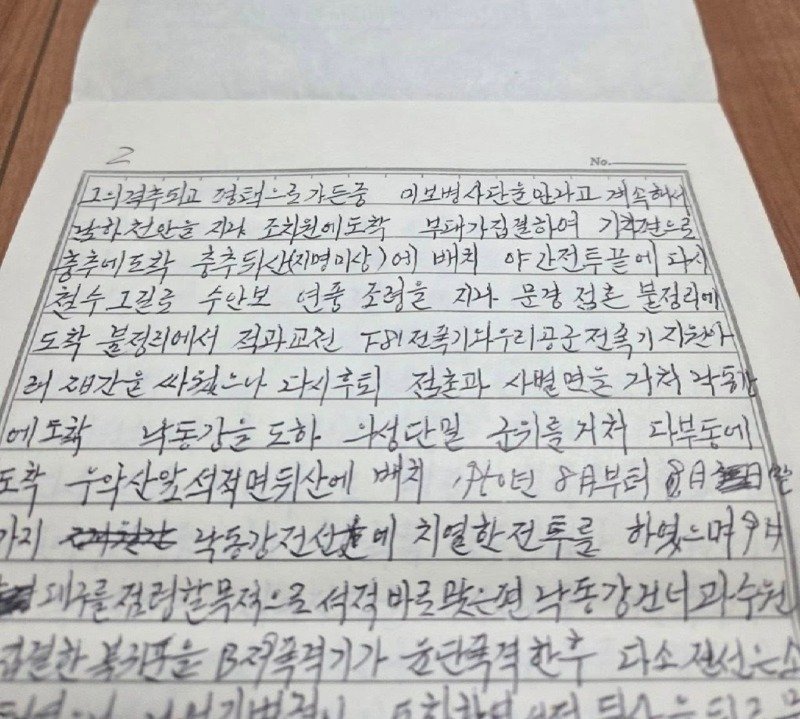 2
No.
그의격추되고 평택으로가든중 미보병사단을만나고 계속해서
남하천안을 지나 조치원에도착 부대가집결하여 기차편으로
충주에도착 충추뒤산(지명미상)에 배치 야간전투끝에 다시
철수그길로 수안보 연풍 조령을 지나 문경 점촌 불정리에
도착 불정리에서 적과교전 F81전폭기와우리공군전폭기 지원아
러 간을 싸웠으나 다시후퇴 점촌과 사벌면을 거쳐 낙동강
에도착 낙동강을도하 의성단밀 군위를거쳐 다부동에
도착 유악산앞석적면뒤산에 배치 년 8月부터 8月 日
가지 낙동강전선에 치열한전투를 하였으며 9月
대구를점령할목적으로 석적 바로맞은편 낙동강건너과수원
집결한 북괴군을 B29폭격기가 융단폭격한후 다소전선은소